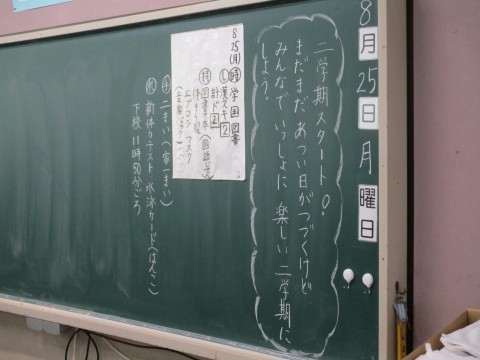 8月25日月曜日
二学期スタート!
まだまだ あつい日がつづくけど
みんなで いっしょに 楽しい 二学期に
しよう!
8/25(月) 時 学 国 図書
し 漢スキ2
計ド2
持 図書の本
エプロン マスク
手 二まい(家一まい)
新体力テスト 水泳カード(はんこ)
下校 11時50分ごろ